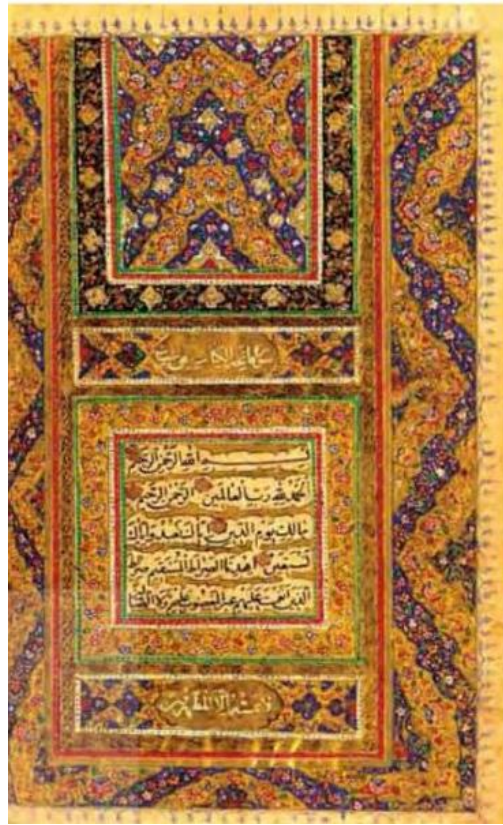 فاتحة الكتاب
بسم الله الرحمن الرحيم
الحمد لله رب العالمين الرحمن الرحيم
مالك يوم الدين اياك نعبد واياك
نستعين اهدنا الصراط المستقيم صراط
الذين انعمت عليهم غير المغضوب عليهم ولا الضا
لا يمسه الا المطهرون